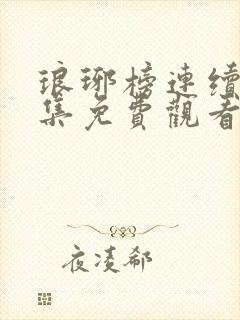 琅琊榜連續
集免費觀看
夜凌郗